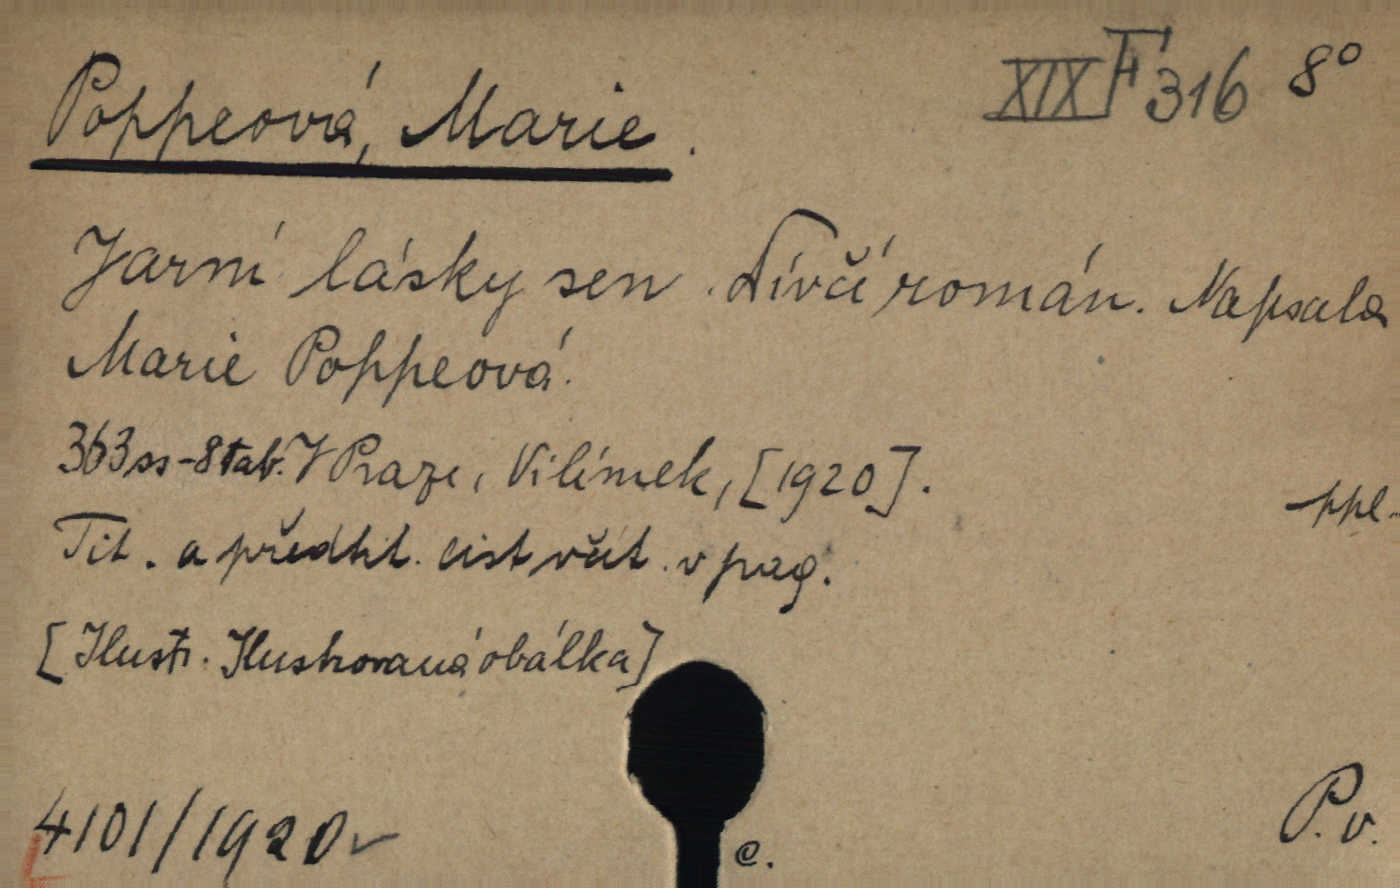 XIX F 316 8°
Poppeová, Marie.
Jarní lásky sen. Dívčí román. Napsala
Marie Poppeová.
363 ss - 8 tab. V Praze, Vilímek, [1920].
ppl.
Tit. a předtit. list včít. v pag.
[Ilustr. Ilustrovaná obálka]
4101/1920
P. v.
c.